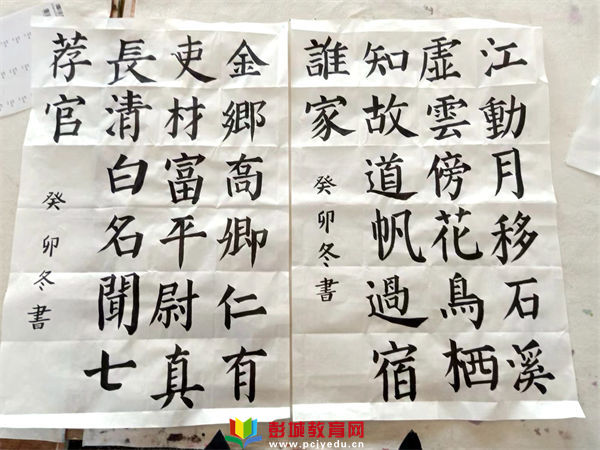 江動月移石溪
虛雲傍花鳥栖
知故道帆過宿
誰家
癸卯冬書
金鄉高卿仁有
吏材富平尉真
長清白名聞七
荐官
癸卯冬書
彭城教育网
www.pcjyedu.cn